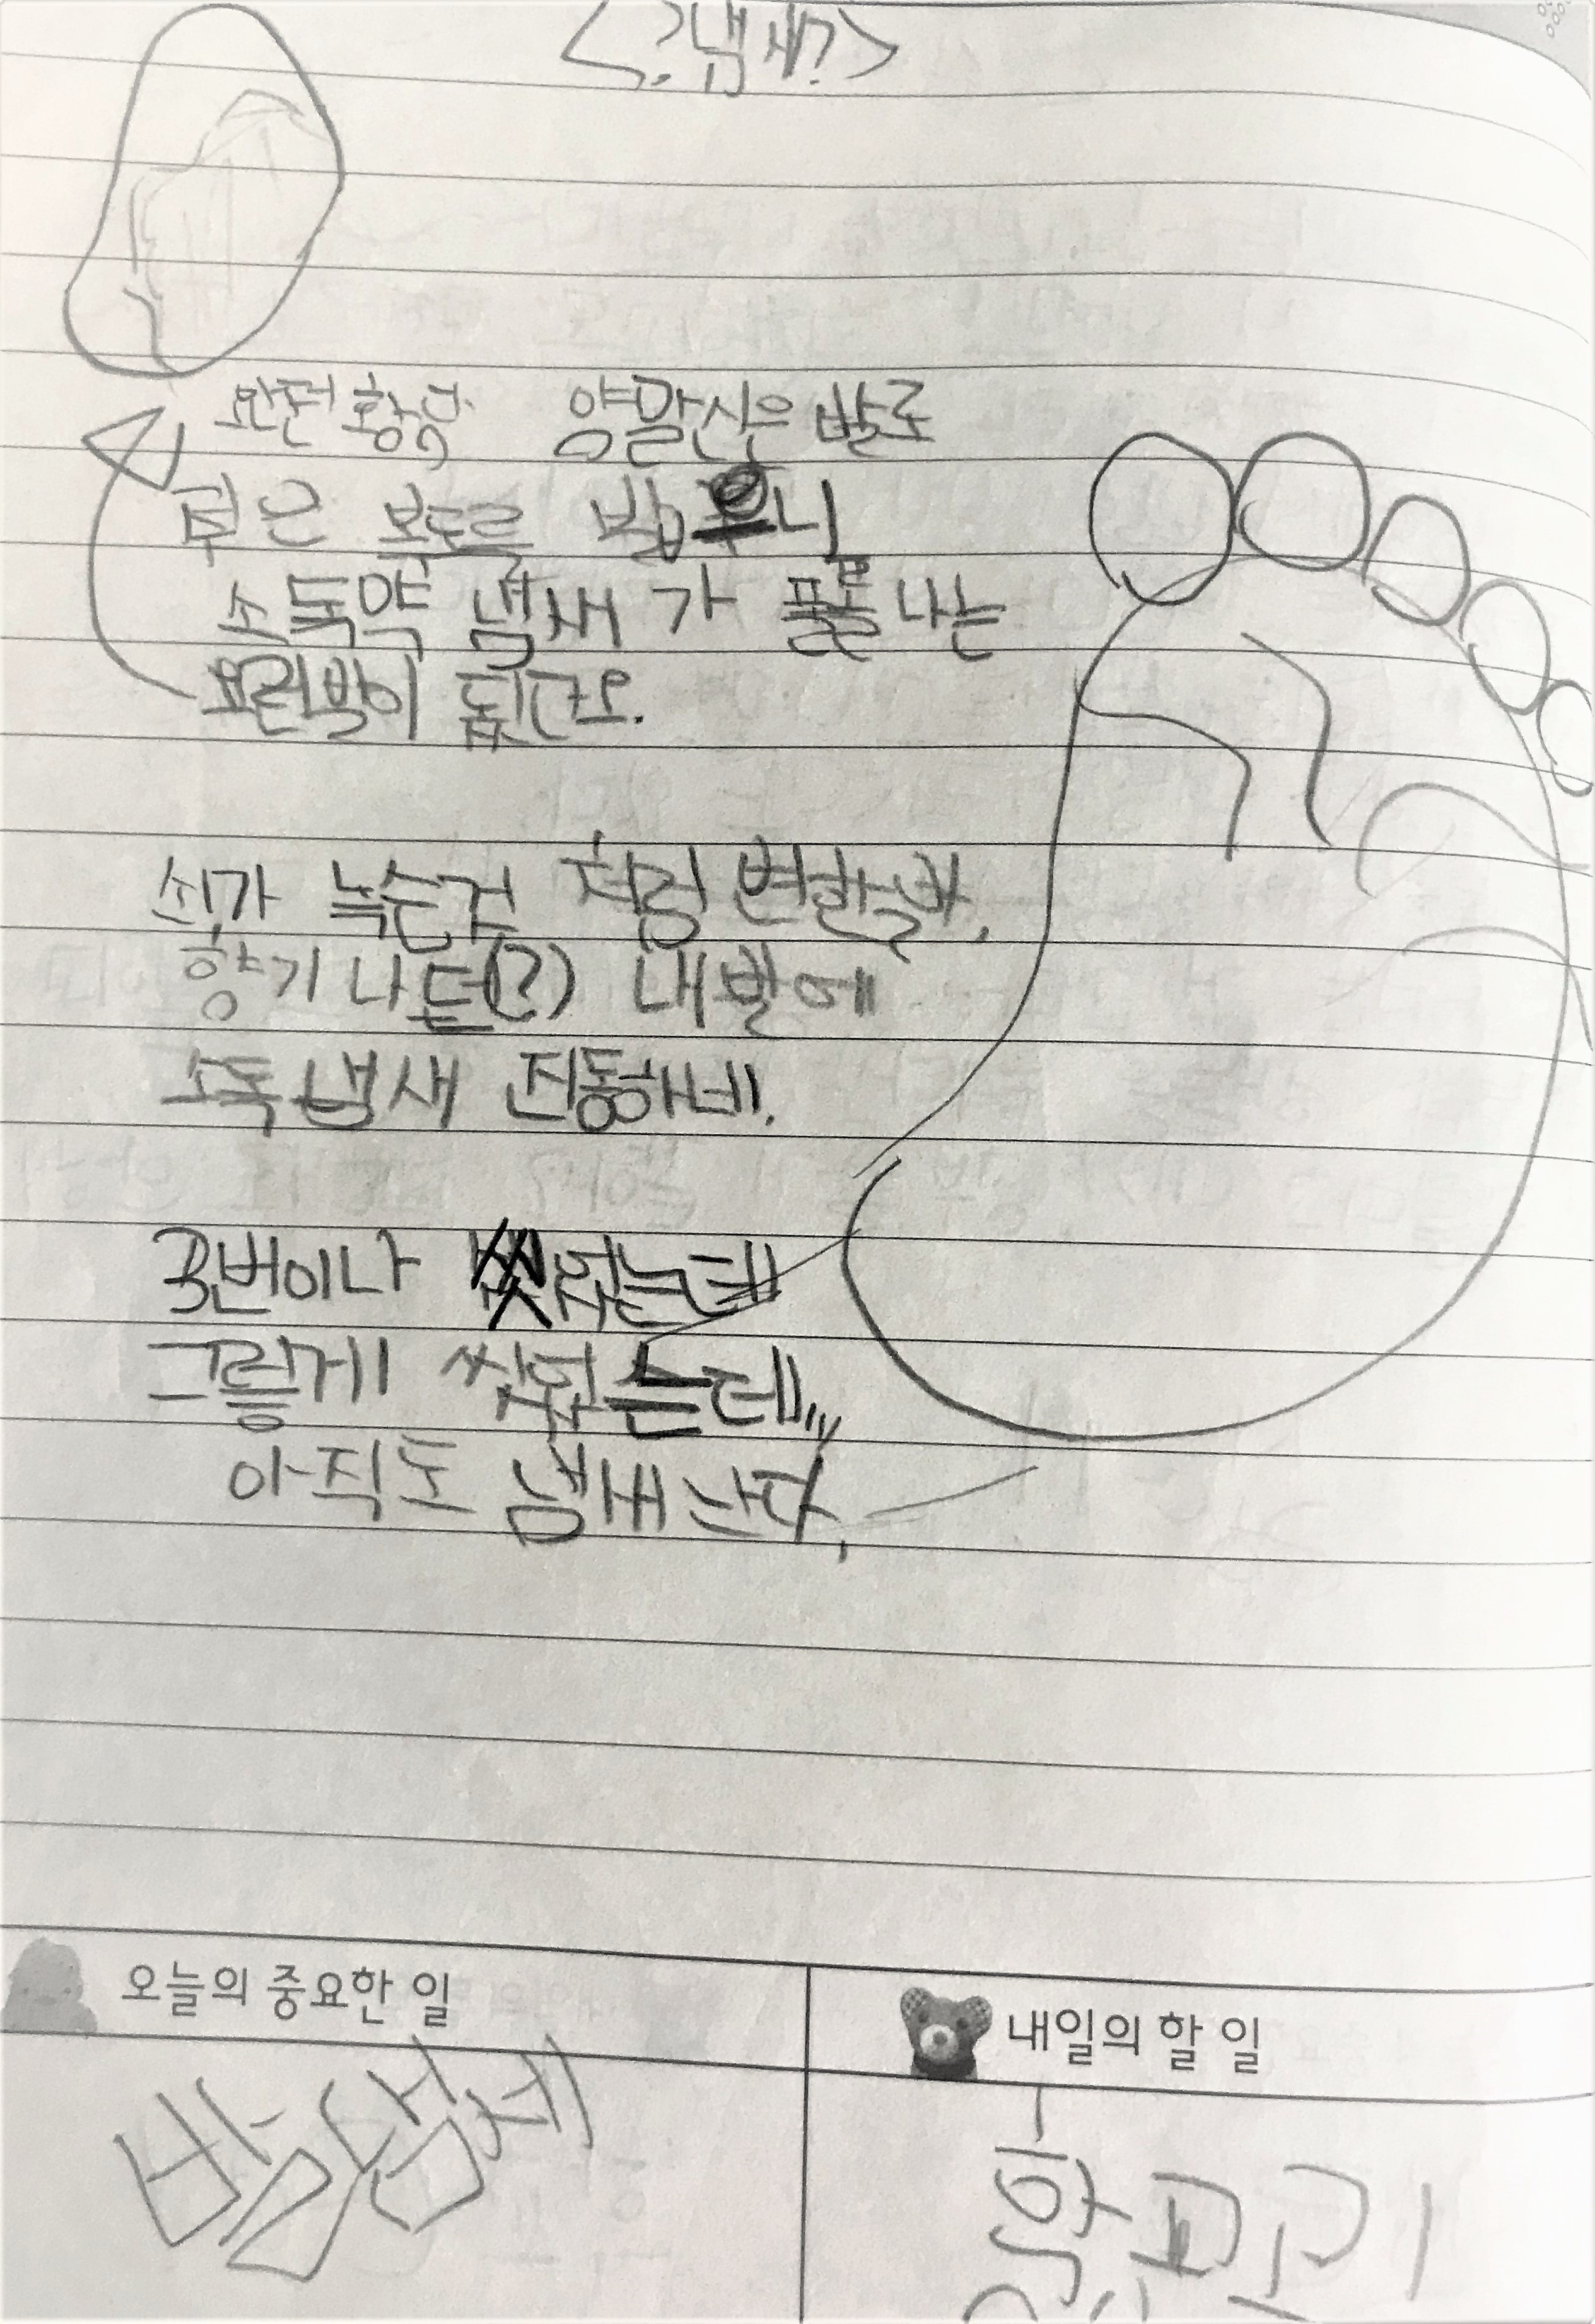 <?냄새?>
완전황금 양말신은 발로
젖은 보도를 밟으니
소독약 냄새가 폴폴 나는
요런발이 됬군요.
쇠가 녹는것 처럼 변한발바,
향기나든(?) 내발에
소독냄새 진동하네.
3번이나 씻었는데
그렇게 씻었는데,,,
아직도 냄새난다,
오늘의 중요한 일
내일의 할 일
발냄세
학교 가기